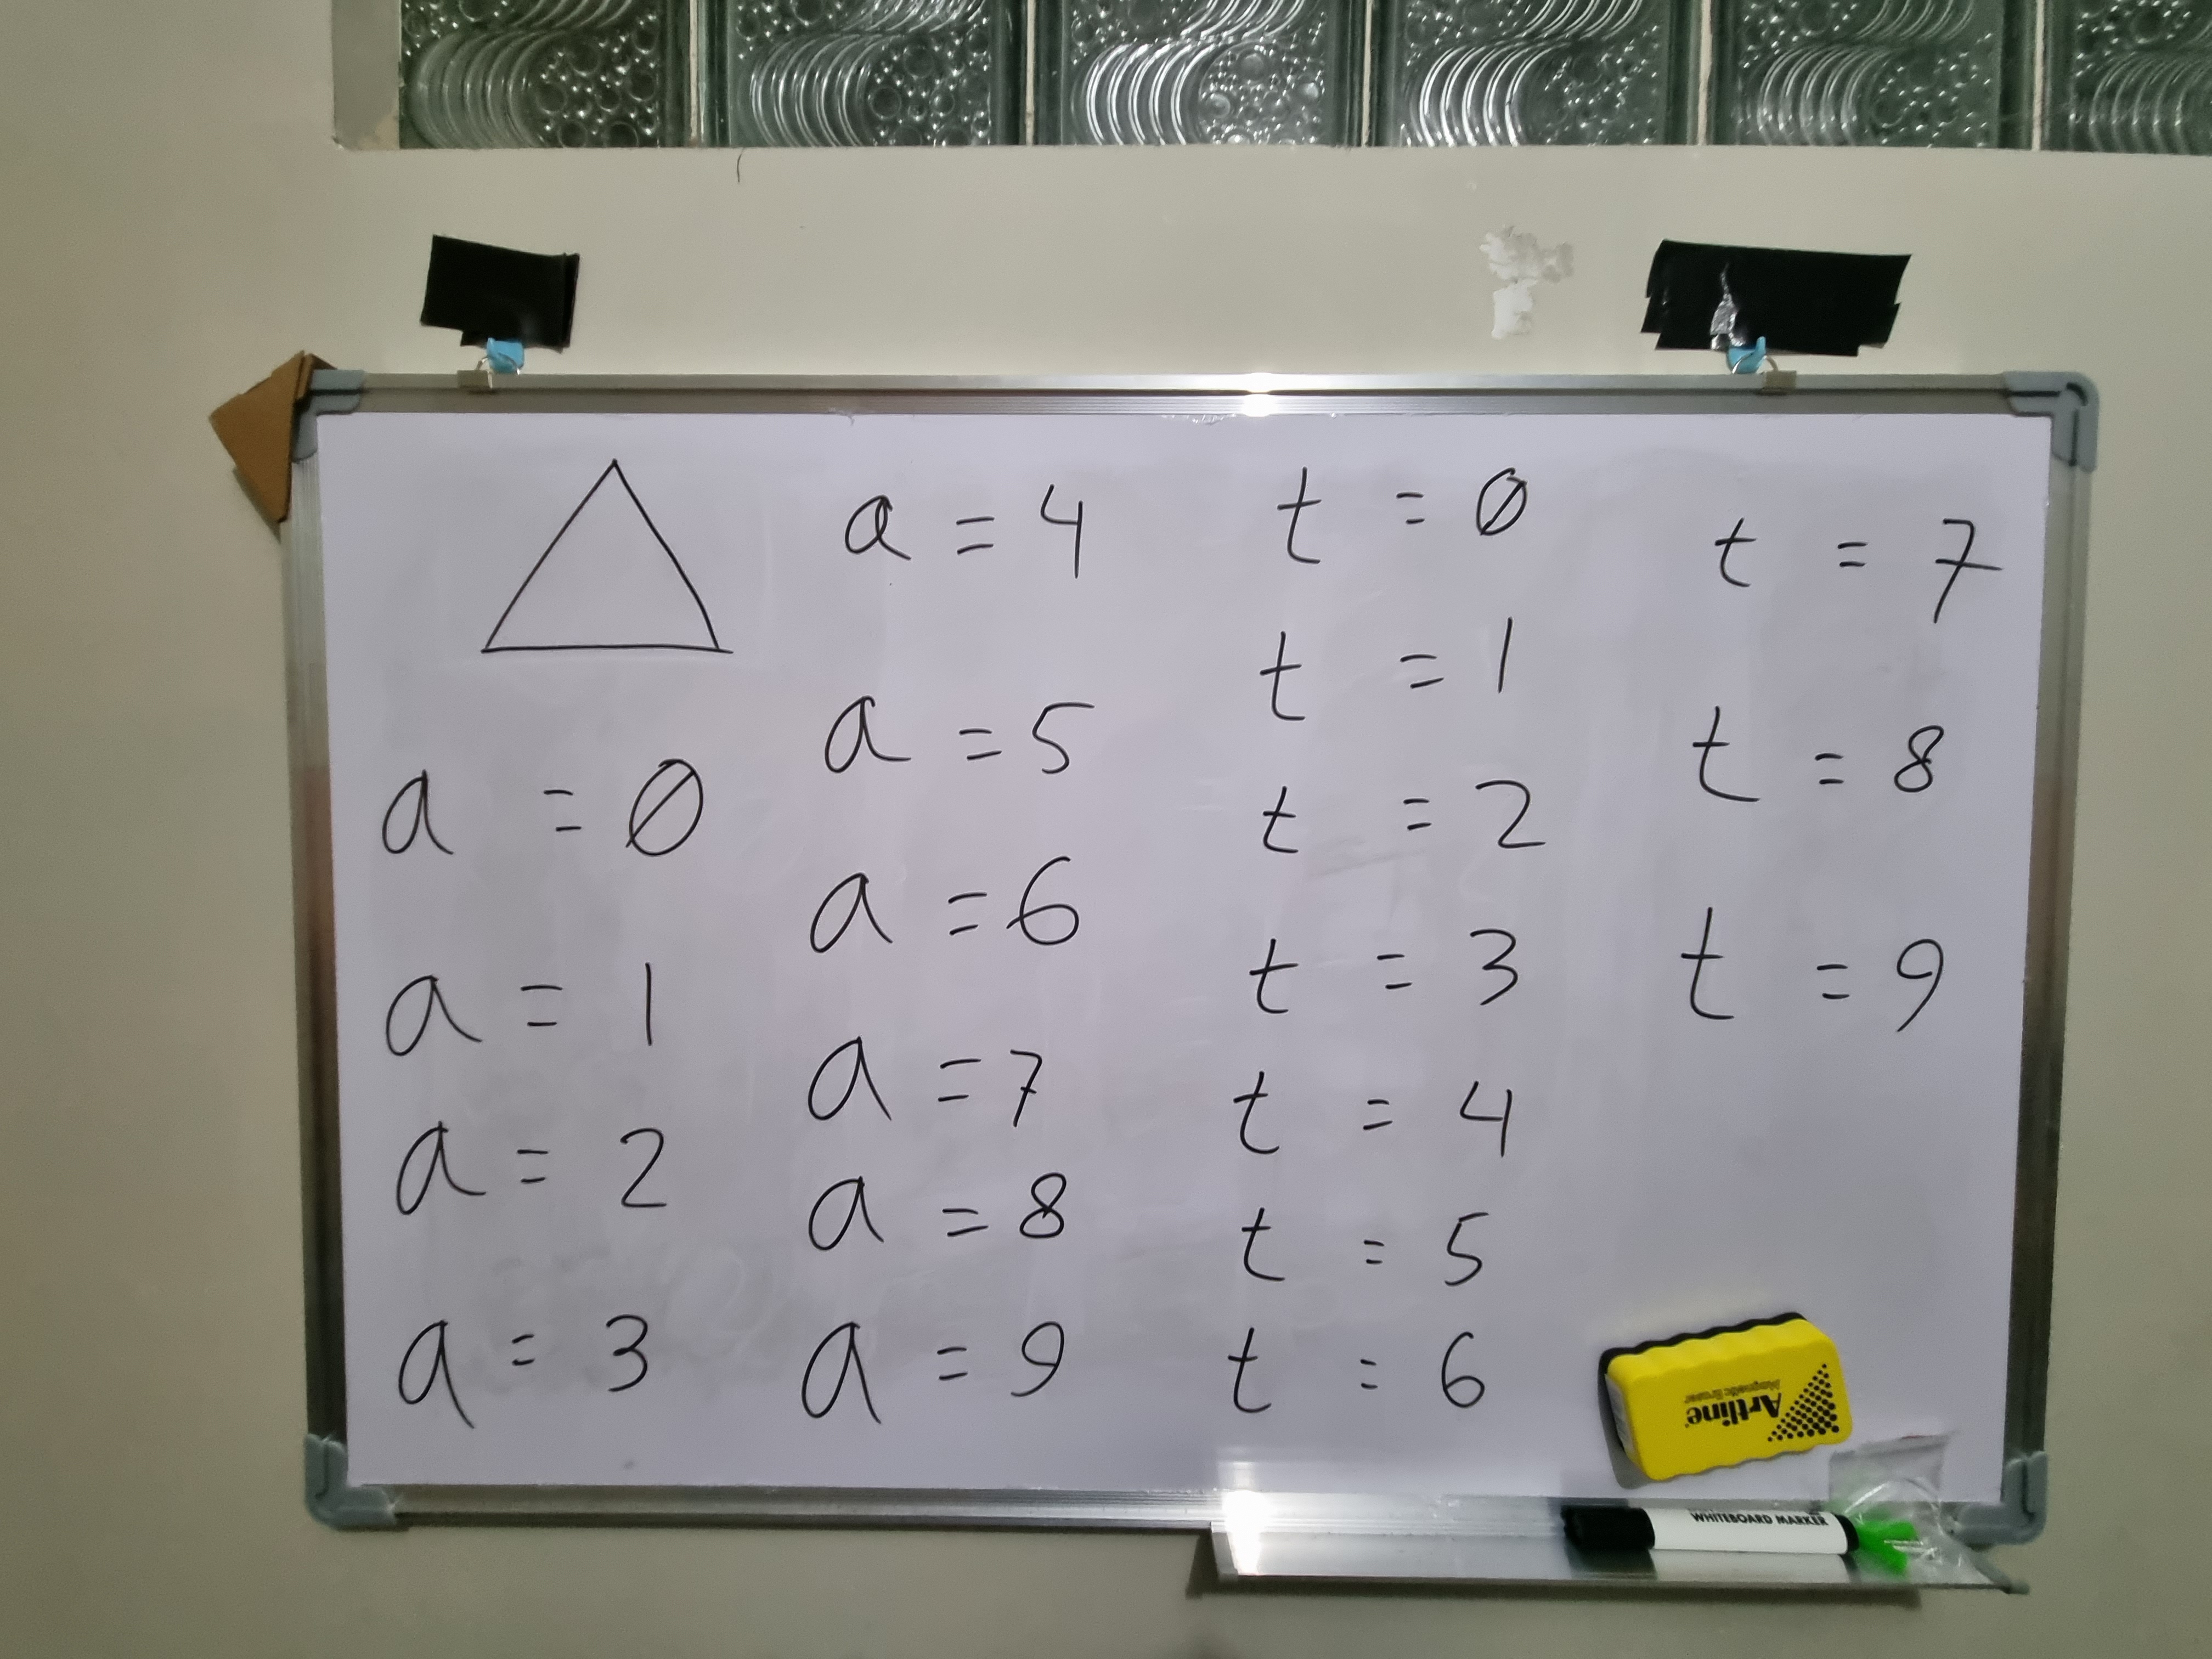 a = 0
a = 1
a = 2
a = 3
a = 4
a = 5
a = 6
a = 7
a = 8
a = 9
t = 0
t = 1
t = 2
t = 3
t = 4
t = 5
t = 6
t = 7
t = 8
t = 9
Artline
Magnetic Eraser
WHITEBOARD MARKER